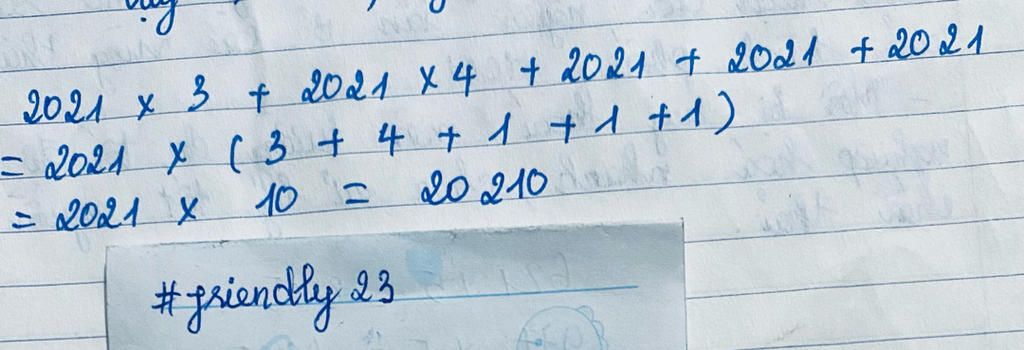 2021 x 3 + 2021 x 4 + 2021 + 2021 + 2021
= 2021 x (3 + 4 + 1 + 1 + 1)
= 2021 x 10 = 20210
#friendly 23